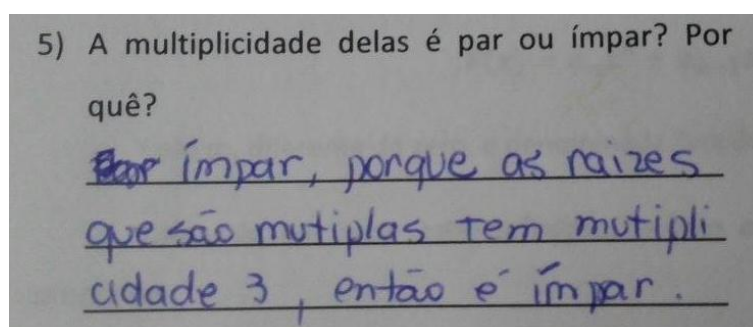 5) A multiplicidade delas é par ou ímpar? Por
quê?
ímpar, porque as raizes
que são mutiplas tem mutipli
cidade 3, então é ímpar.